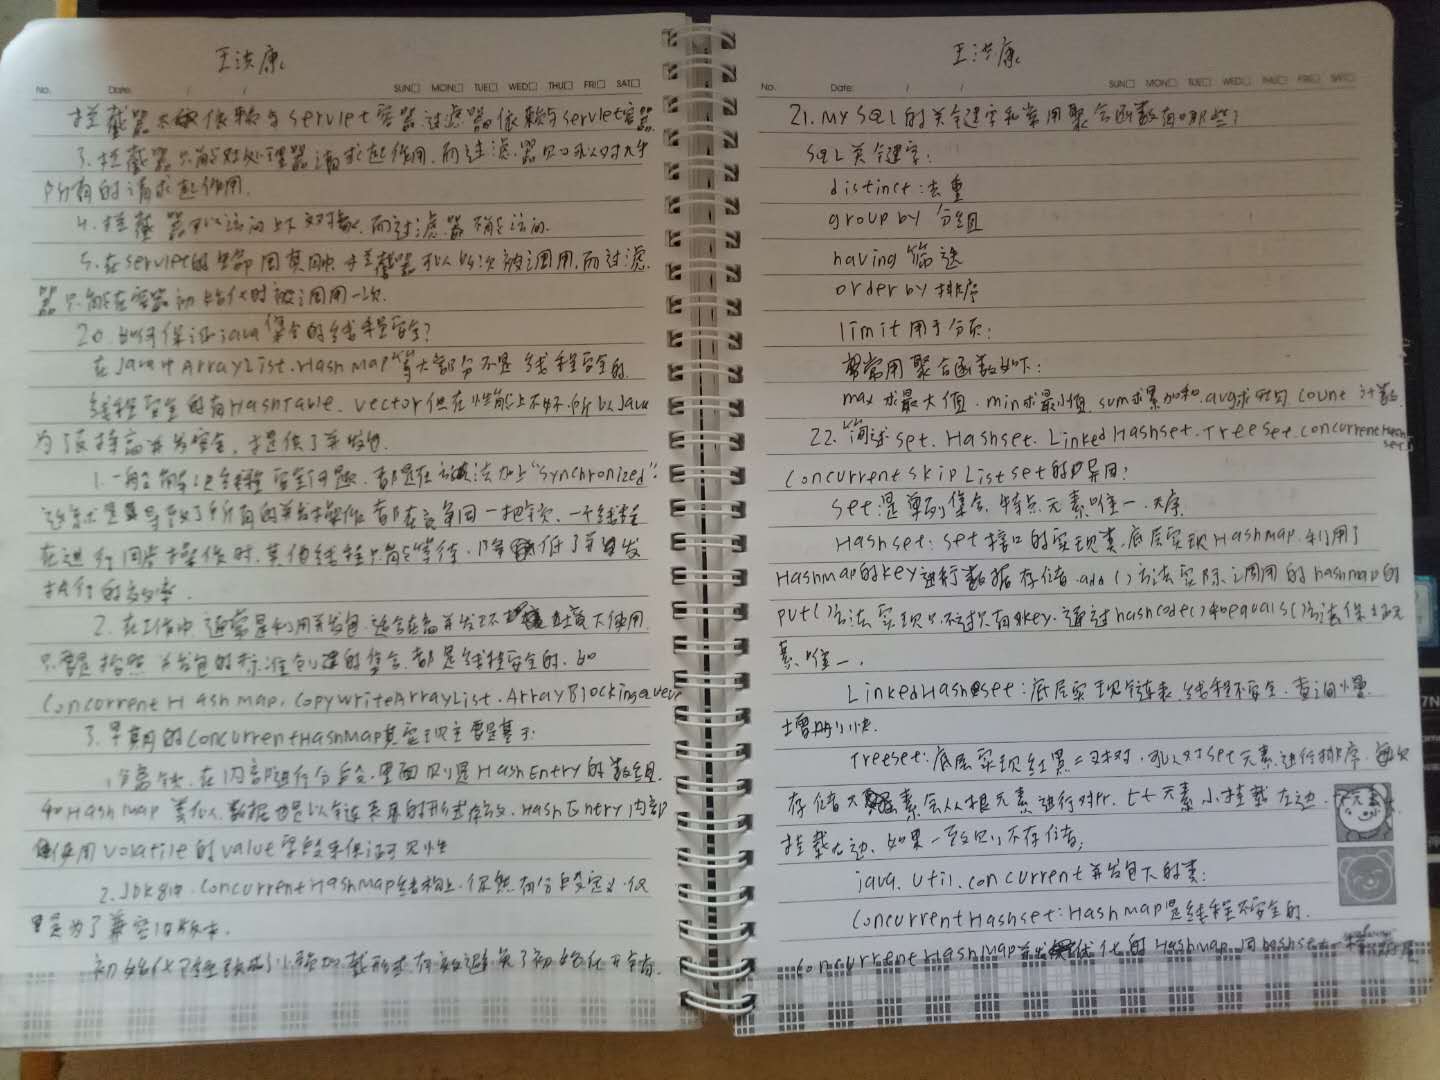 王洪康
No. Date: / / SUN□ MON□ TUE□ WED□ THU□ FRI□ SAT□
拦截器不依赖与servlet容器过滤器依赖与servlet容器
3.拦截器只能对处理器请求起作用.而过滤器则可以对几乎
所有的请求起作用.
4.拦截器可以访问上下文对象.而过滤器不能访问.
5.在servlet的生命周期中拦截器可以多次被调用.而过滤
器只能在容器初始化时被调用一次.
20.如何保证java集合的线程安全?
在Java中ArrayList.HashMap等大部分不是线程安全的
线程安全的有HashTable、vector但在性能上不好.所以Java
为了支持高并发安全.提供了并发包
1.一般解决线程安全问题.都是在方法加上"synchronized".
这样导致了所有的并发操作都在竞争同一把锁.一个线程
在进行同步操作时.其他线程只能等待.降低了并发
执行的效率.
2.在工作中通常是利用并发包.适合在高并发环境下使用
只要是按照并发包的标准创建的集合.都是线程安全的.如
ConcurrentHashmap,CopywriteArrayList.ArrayBlocking
3.早期的ConcurrentHashMap其实现主要是基于:
分离锁.在内部进行分段.里面则是HashEntry的数组.
和HashMap类似.数据也是以链表的形式存放.HashEntry内部
使用volatile的value字段来保证可见性
2.JDK8中.ConcurrentHashMap结构上.仍然有分段定义.仅
是为了兼容旧版本.
初始化
王洪康
No. Date: / / SUN□ MON□ TUE□ WED□ THU□ FRI□ SAT□
21.MySQL的关键字和常用聚合函数有哪些?
SQL关键字:
distinct:去重
group by 分组
having 筛选
order by 排序
limit 用于分页:
常用聚合函数如下:
max求最大值.min求最小值.sum求累加和.avg求平均 count 计数
22.简述set.Hashset.LinkedHashset.TreeSet.concurrentHashset
ConcurrentskipListset的异同?
Set:是单列集合.特点元素唯一.无序
Hashset:set接口的实现类.底层实现Hashmap.利用了
Hashmap的key进行数据存储.add()方法实际调用的hashmap的
put()方法实现只不过只有key.通过hashcode()和equals()方法保证元
素唯一.
LinkedHashset:底层实现链表.线程不安全.查询慢
增删快.
Treeset:底层实现红黑二叉树.可以对set元素进行排序.每次
存储元素会从根元素进行对比.比元素小挂载左边.大元素
挂载右边.如果一致则不存储;
java.util.concurrent并发包下的类:
ConcurrentHashset:Hashmap是线程不安全的.
ConcurrentHashMap并发优化的Hashmap.同hashset一样